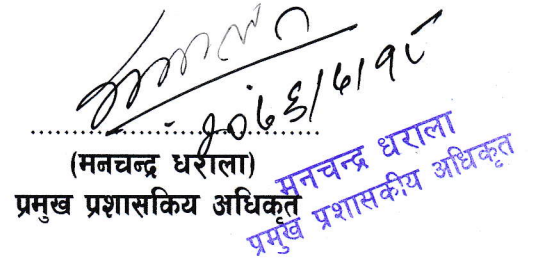 (मनचन्द्र धराला)
प्रमुख प्रशासकिय अधिकृत
मनचन्द्र धराला
प्रमुख प्रशासकीय अधिकृत